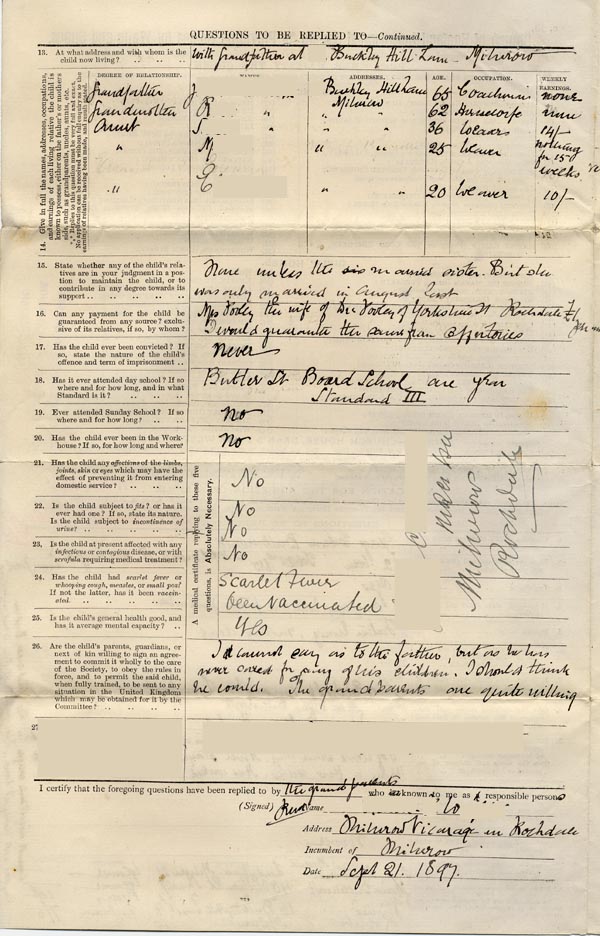 QUESTIONS TO BE REPLIED TO—Continued.
13. At what address and with whom is the
child now living? .. .. ..
with grandfather at Buckley Hill Lane Milnrow
14. Give in full the names, addresses, occupations,
and earnings of each living relative the child is
known to possess, either on the father's or mother's
side, such as grandparents, uncles, aunts, etc.
DEGREE OF RELATIONSHIP. ADDRESSES. AGE. OCCUPATION. WEEKLY EARNINGS.
Grandfather J Buckley Hill Lane 65 Coachman none
Grandmother R Milnrow 62 Housewife none
Aunt S " " 36 Weaver 14/-
" M " " 25 Weaver nothing
for 15
weeks
" E " " 20 Weaver 10/-
15. State whether any of the child's rela-
tives are in your judgment in a posi-
tion to maintain the child, or to
contribute in any degree towards its
support .. .. .. ..
None unless the married sister. But she
was only married in August last
16. Can any payment for the child be
guaranteed from any source? exclu-
sive of its relatives, if so, by whom?
the wife of Dr of Yorkshire St Rochdale
I would guarantee the same from offertories
17. Has the child ever been convicted? If
so, state the nature of the child's
offence and term of imprisonment ..
Never
18. Has it ever attended day school? If so
where and for how long, and in what
Standard is it? .. .. ..
Butler St Board School one year
Standard III
19. Ever attended Sunday School? If so
where and for how long? .. ..
No
20. Has the child ever been in the Work-
house? If so, for how long and where?
No
A medical certificate replying to these five
questions, is Absolutely Necessary.
21. Has the child any affections of the limbs,
joints, skin or eyes which may have the
effect of preventing it from entering
domestic service? .. .. ..
No
22. Is the child subject to fits? or has it
ever had one? If so, state its nature.
Is the child subject to incontinence of
urine? .. .. .. ..
No
No
23. Is the child at present affected with any
infectious or contagious disease, or with
scrofula requiring medical treatment?
No
24. Has the child had scarlet fever or
whooping cough, measles, or small pox?
If not the latter, has it been vaccin-
ated. .. .. .. ..
Scarlet Fever
been Vaccinated
25. Is the child's general health good, and
has it average mental capacity? ..
Yes
Milnrow
Rochdale
26. Are the child's parents, guardians, or
next of kin willing to sign an agree-
ment to commit it wholly to the care
of the Society, to obey the rules in
force, and to permit the said child,
when fully trained, to be sent to any
situation in the United Kingdom
which may be obtained for it by the
Committee? .. .. ..
I cannot say as to the father, but as he has
never cared for any of his children. I should think
he would. The grand parents are quite willing
27
I certify that the foregoing questions have been replied to by the grand parents who are known to me as responsible persons
(Signed) Name
Address Milnrow Vicarage in Rochdale
Incumbent of Milnrow
Date Sept 21. 1897.